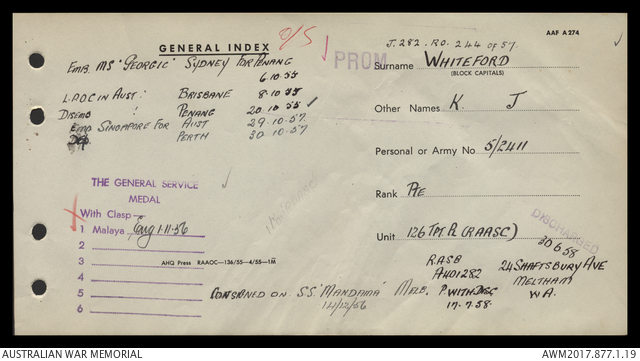 AAF A274
GENERAL INDEX O/S
J.282. RO. 244 of 57.
EMB. MS "GEORGIC" SYDNEY FOR PENANG
6.10.55
PROM
Surname WHITEFORD
(BLOCK CAPITALS)
L.PDC IN AUST: BRISBANE 8.10.55
DISEMB PENANG 20.10.55 ✓
EMB SINGAPORE FOR AUST 29.10.57.
PERTH 30.10.57.
Other Names K. J
Personal or Army No 5/2411
Rank PTE
Unit 126 TPT PL (RAASC)
THE GENERAL SERVICE
MEDAL
With Clasp
1 Malaya Eng 1-11-56
2
3
4
5
6
AHQ Press RAAOC—136/55—4/55—1M
DISCHARGED
30.6.58
RASB
A401282
P. WITH DISC
17.7.58.
24 SHAFTSBURY AVE
MELTHAM
W.A.
CONSIGNED ON S.S. "MANDAMA" MELB.
14/12/56
AUSTRALIAN WAR MEMORIAL
AWM2017.877.1.19